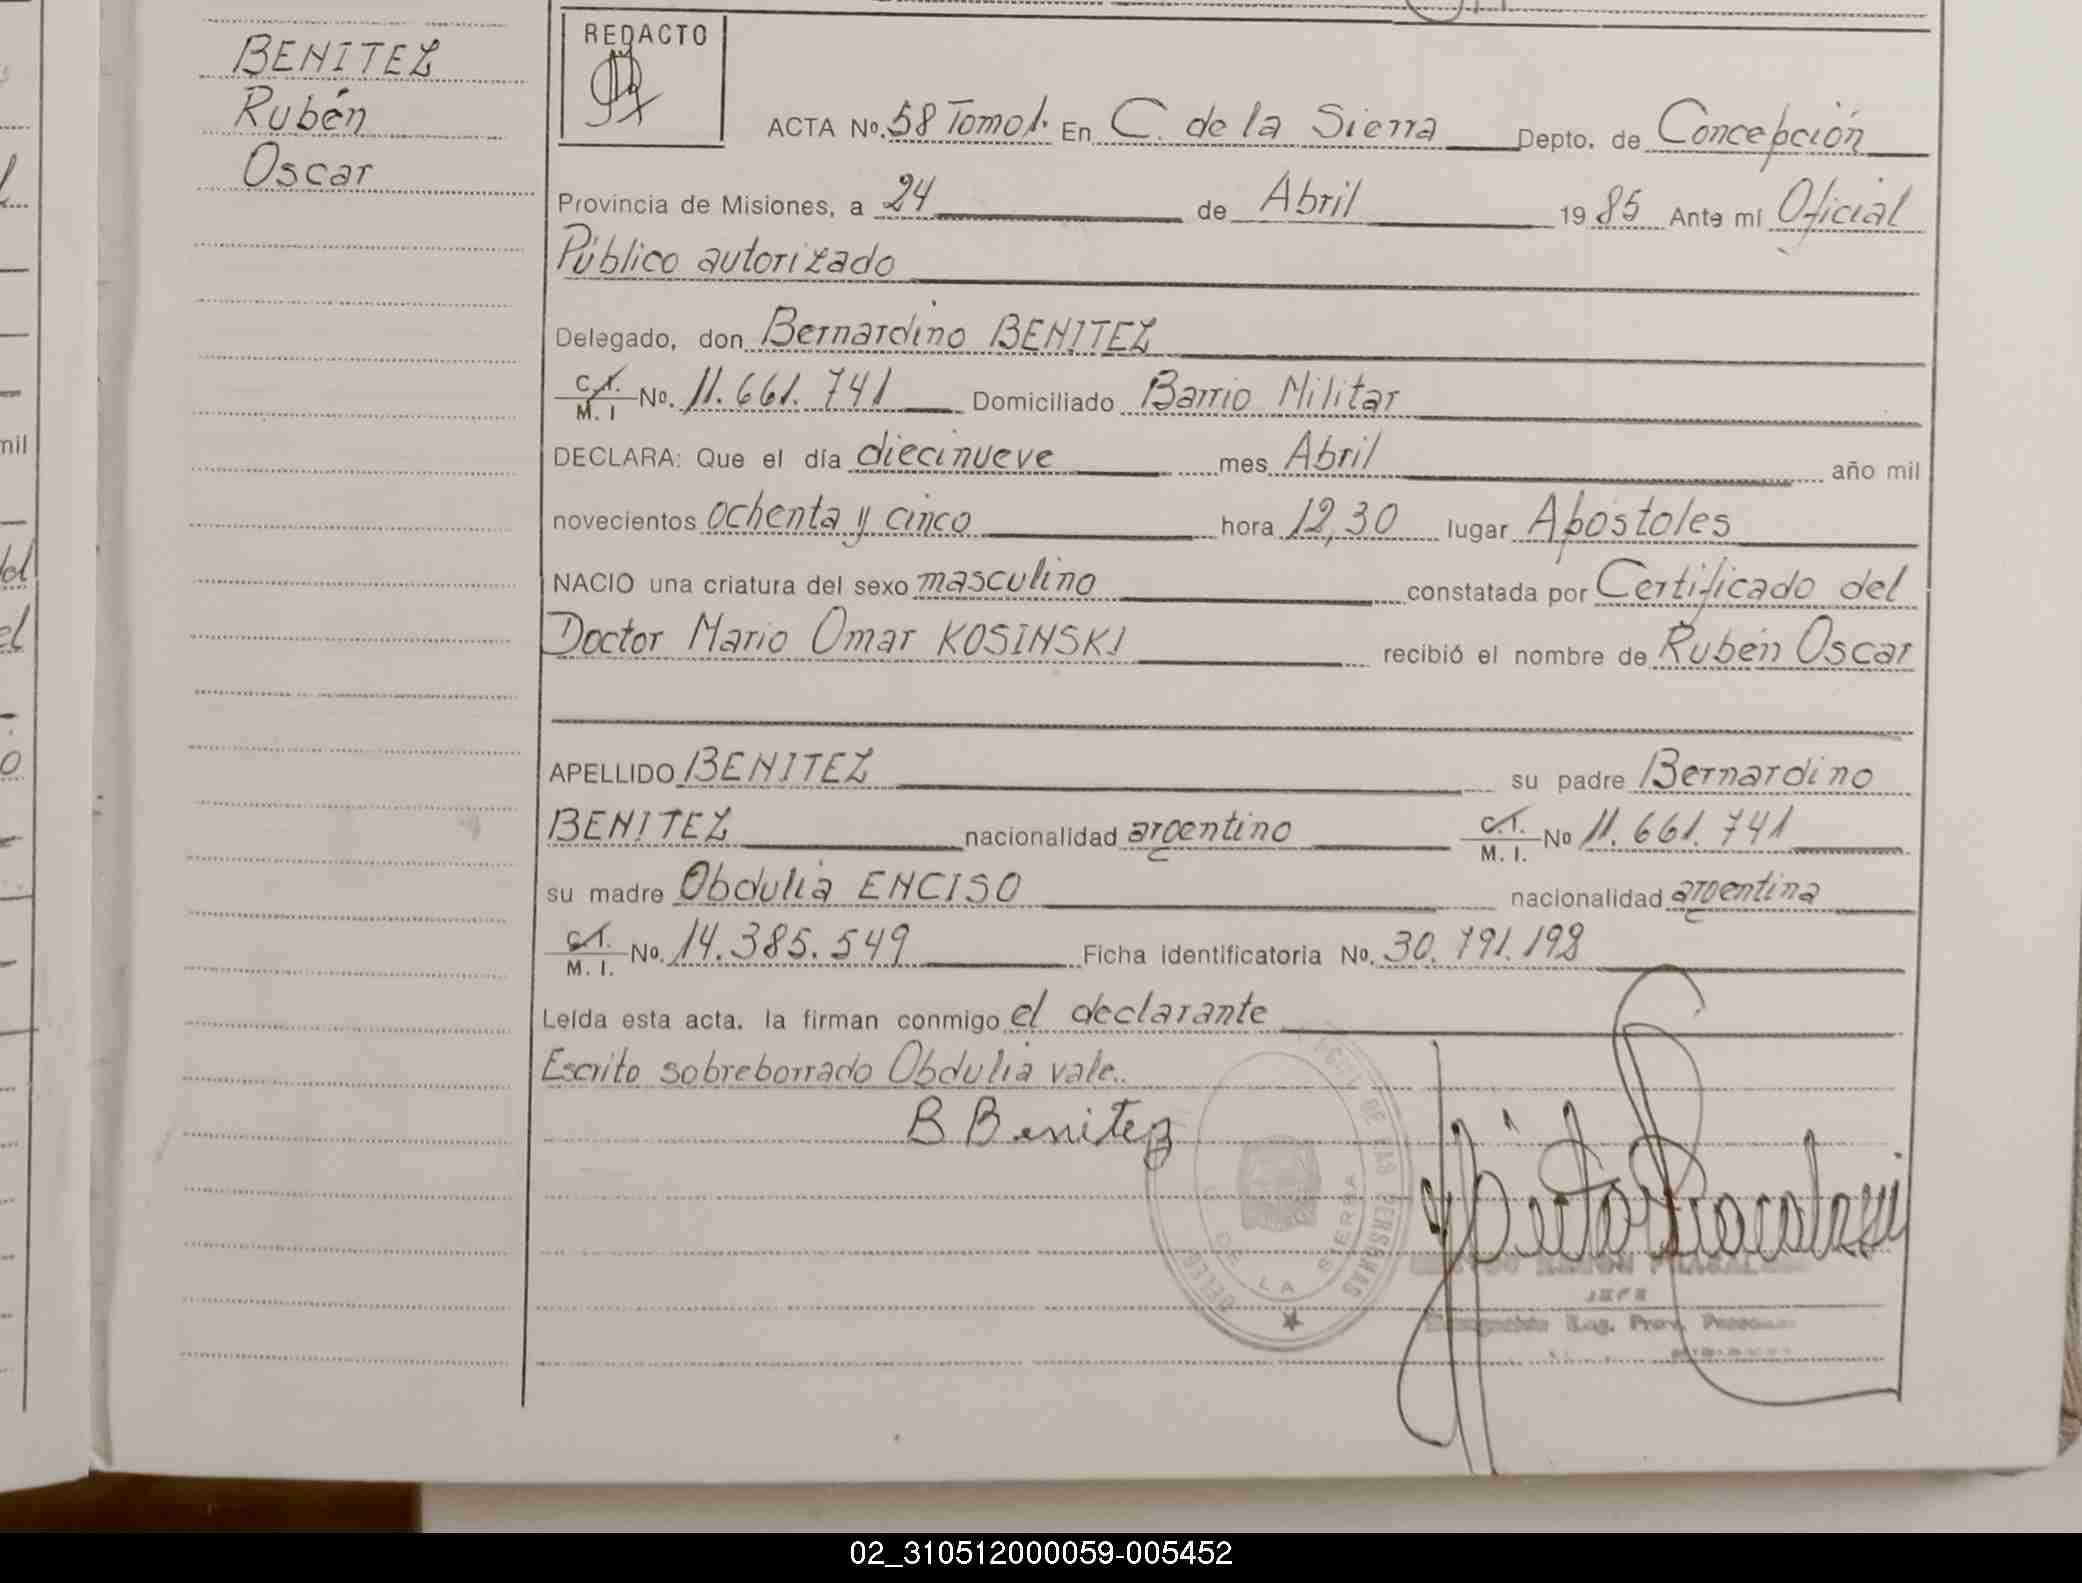 BENITEZ
Rubén
Oscar
REDACTO
ACTA No. 58 Tomo 1. En C. de la Sierra Depto. de Concepción
Provincia de Misiones, a 24 de Abril 1985 Ante mi Oficial
Público autorizado
Delegado, don Bernardino BENITEZ
C.I. M. I No. 11.661.741 Domiciliado Barrio Militar
DECLARA: Que el día diecinueve mes Abril año mil
novecientos ochenta y cinco hora 12,30 lugar Apóstoles
NACIO una criatura del sexo masculino constatada por Certificado del
Doctor Mario Omar KOSINSKI recibió el nombre de Rubén Oscar
APELLIDO BENITEZ su padre Bernardino
BENITEZ nacionalidad argentino C.I. M. I. No 11.661.741
su madre Obdulia ENCISO nacionalidad argentina
C.I. M. I. No. 14.385.549 Ficha identificatoria No. 30.791.198
Leída esta acta. la firman conmigo el declarante
Escrito sobreborrado Obdulia vale..
B Benitez
DE LAS PERSONAS
DE LA SIERRA
JEFE
02_310512000059-005452